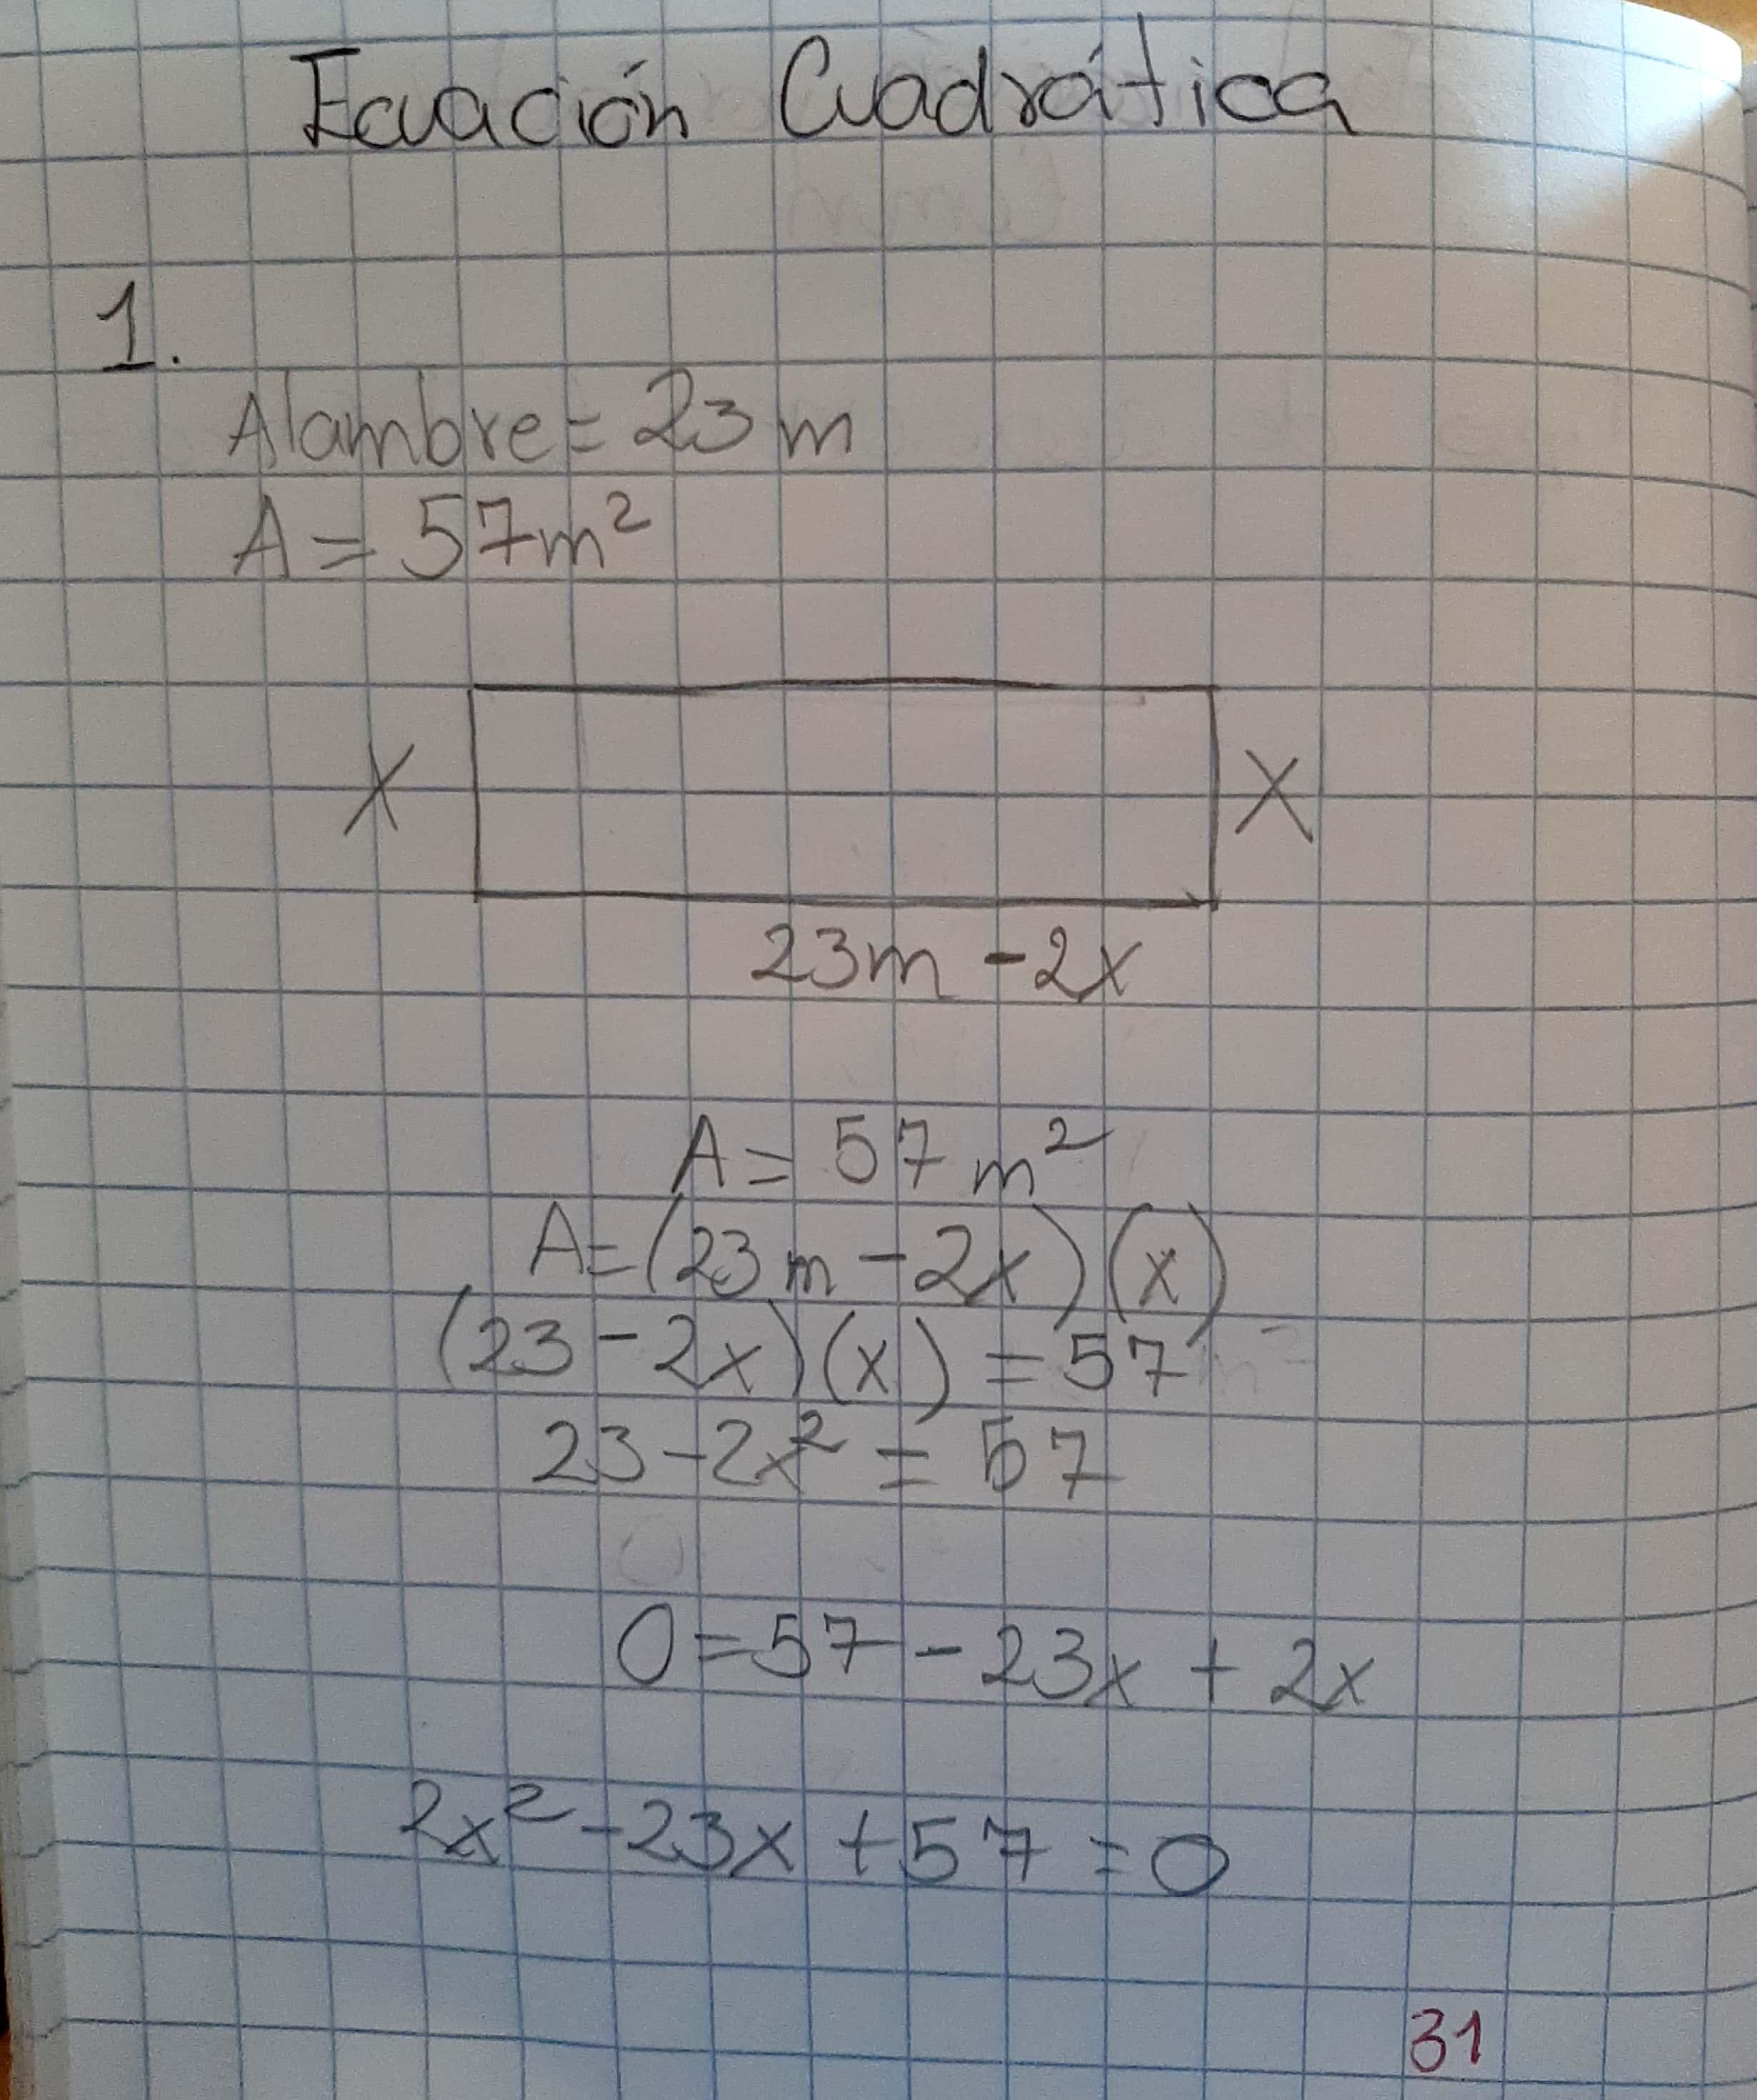 Ecuación Cuadrática
1.
Alambre = 23 m
A = 57m²
X
X
23m - 2x
A = 57 m²
A = (23 m - 2x)(x)
(23 - 2x)(x) = 57
23 - 2x² = 57
0 = 57 - 23x + 2x
2x² - 23x + 57 = 0
31